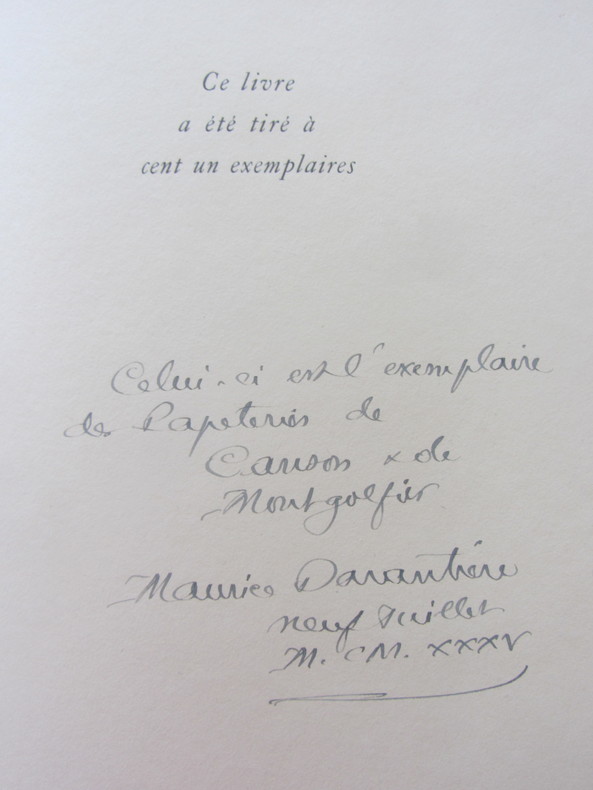 Ce livre
a été tiré à
cent un exemplaires
Celui-ci est l'exemplaire
des Papeteries de
Canson & de
Montgolfier
Maurice Darantière
neuf Juillet
M. CM. XXXV